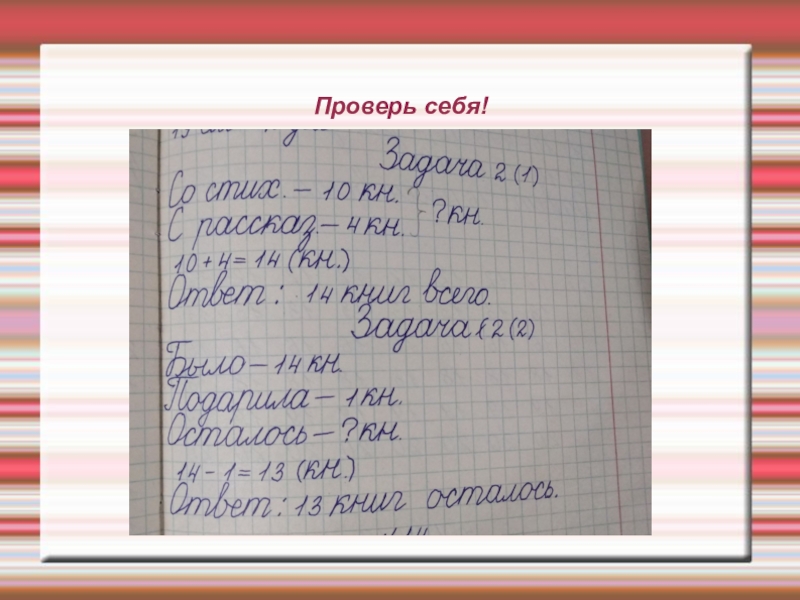 Проверь себя!
Задача 2 (1)
Со стих. – 10 кн.
?кн.
С рассказ. – 4 кн.
10 + 4 = 14 (кн.)
Ответ: 14 книг всего.
Задача 2 (2)
Было – 14 кн.
Подарила – 1 кн.
Осталось – ? кн.
14 - 1 = 13 (кн.)
Ответ: 13 книг осталось.